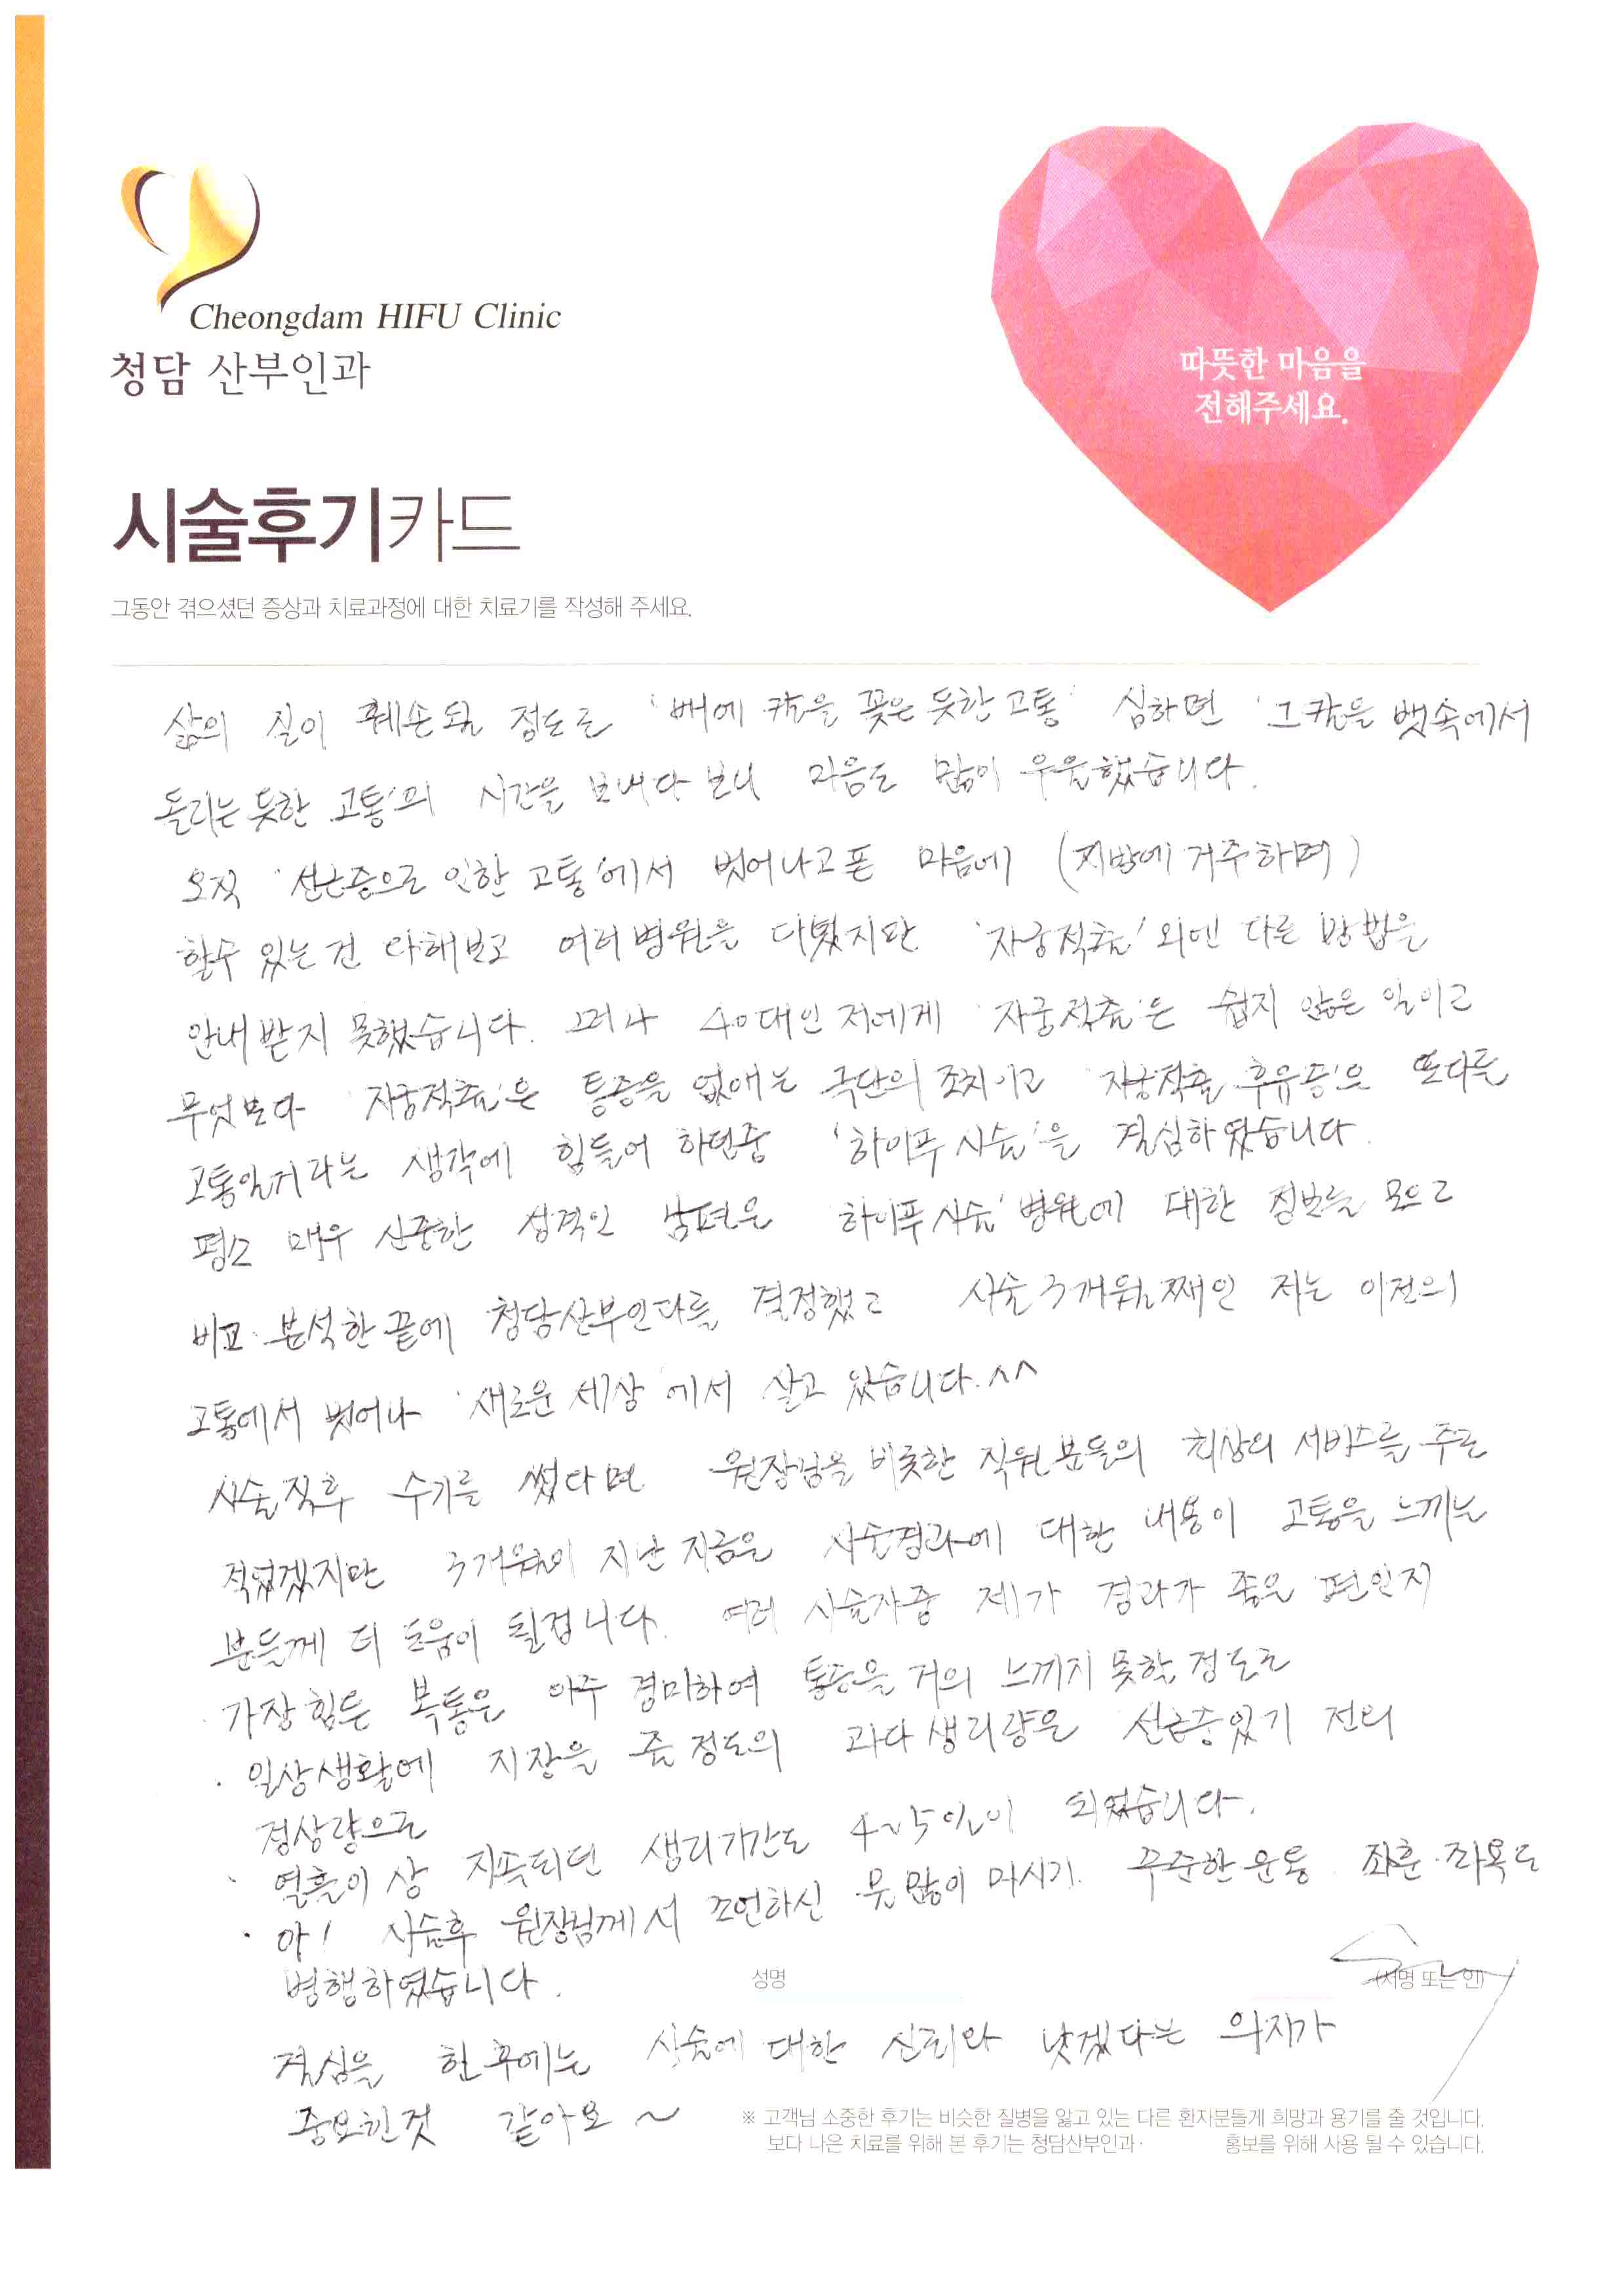 Cheongdam HIFU Clinic
청담 산부인과
따뜻한 마음을
전해주세요.
시술후기카드
그동안 겪으셨던 증상과 치료과정에 대한 치료기를 작성해 주세요.
삶의 질이 훼손될 정도로 '배에 칼을 꽂은 듯한 고통' 심하면 '그 칼을 뱃속에서
돌리는 듯한 고통'의 시간을 보내다 보니 마음도 많이 우울했습니다.
오직 '선근증으로 인한 고통'에서 벗어나고픈 마음에 (지방에 거주하며)
할수 있는 건 다해보고 여러 병원을 다녔지만 '자궁적출' 외엔 다른 방법을
안내 받지 못했습니다. 그러나 40대인 저에게 '자궁적출'은 쉽지 않은 일이고
무엇보다 '자궁적출'은 통증을 없애는 극단의 조치이고 '자궁적출 후유증'은 또다른
고통일거라는 생각에 힘들어 하던중 '하이푸 시술'을 결심하였습니다.
평소 매우 신중한 성격인 남편은 '하이푸 시술' 병원에 대한 정보를 모으고
비교·분석한 끝에 청담산부인과를 결정했고 시술 3개월째인 저는 이전의
고통에서 벗어나 '새로운 세상'에서 살고 있습니다.^^
시술 직후 수기를 썼다면 원장님을 비롯한 직원분들의 최상의 서비스를 주로
적었겠지만 3개월이 지난 지금은 시술결과에 대한 내용이 고통을 느끼는
분들께 더 도움이 될겁니다. 여러 시술자중 제가 경과가 좋은 편인지
· 가장 힘든 복통은 아주 경미하여 통증을 거의 느끼지 못할 정도로
· 일상생활에 지장을 줄 정도의 과다 생리량은 선근증있기 전의
정상량으로
· 열흘이상 지속되던 생리기간도 4~5일이 되었습니다.
· 아! 시술후 원장님께서 조언하신 물 많이 마시기. 꾸준한 운동. 좌훈·좌욕도
병행하였습니다.
성명
(서명 또는 인)
결심을 한 후에는 시술에 대한 신뢰와 낫겠다는 의지가
중요한것 같아요 ~
※ 고객님 소중한 후기는 비슷한 질병을 앓고 있는 다른 환자분들게 희망과 용기를 줄 것입니다.
보다 나은 치료를 위해 본 후기는 청담산부인과· 홍보를 위해 사용 될 수 있습니다.